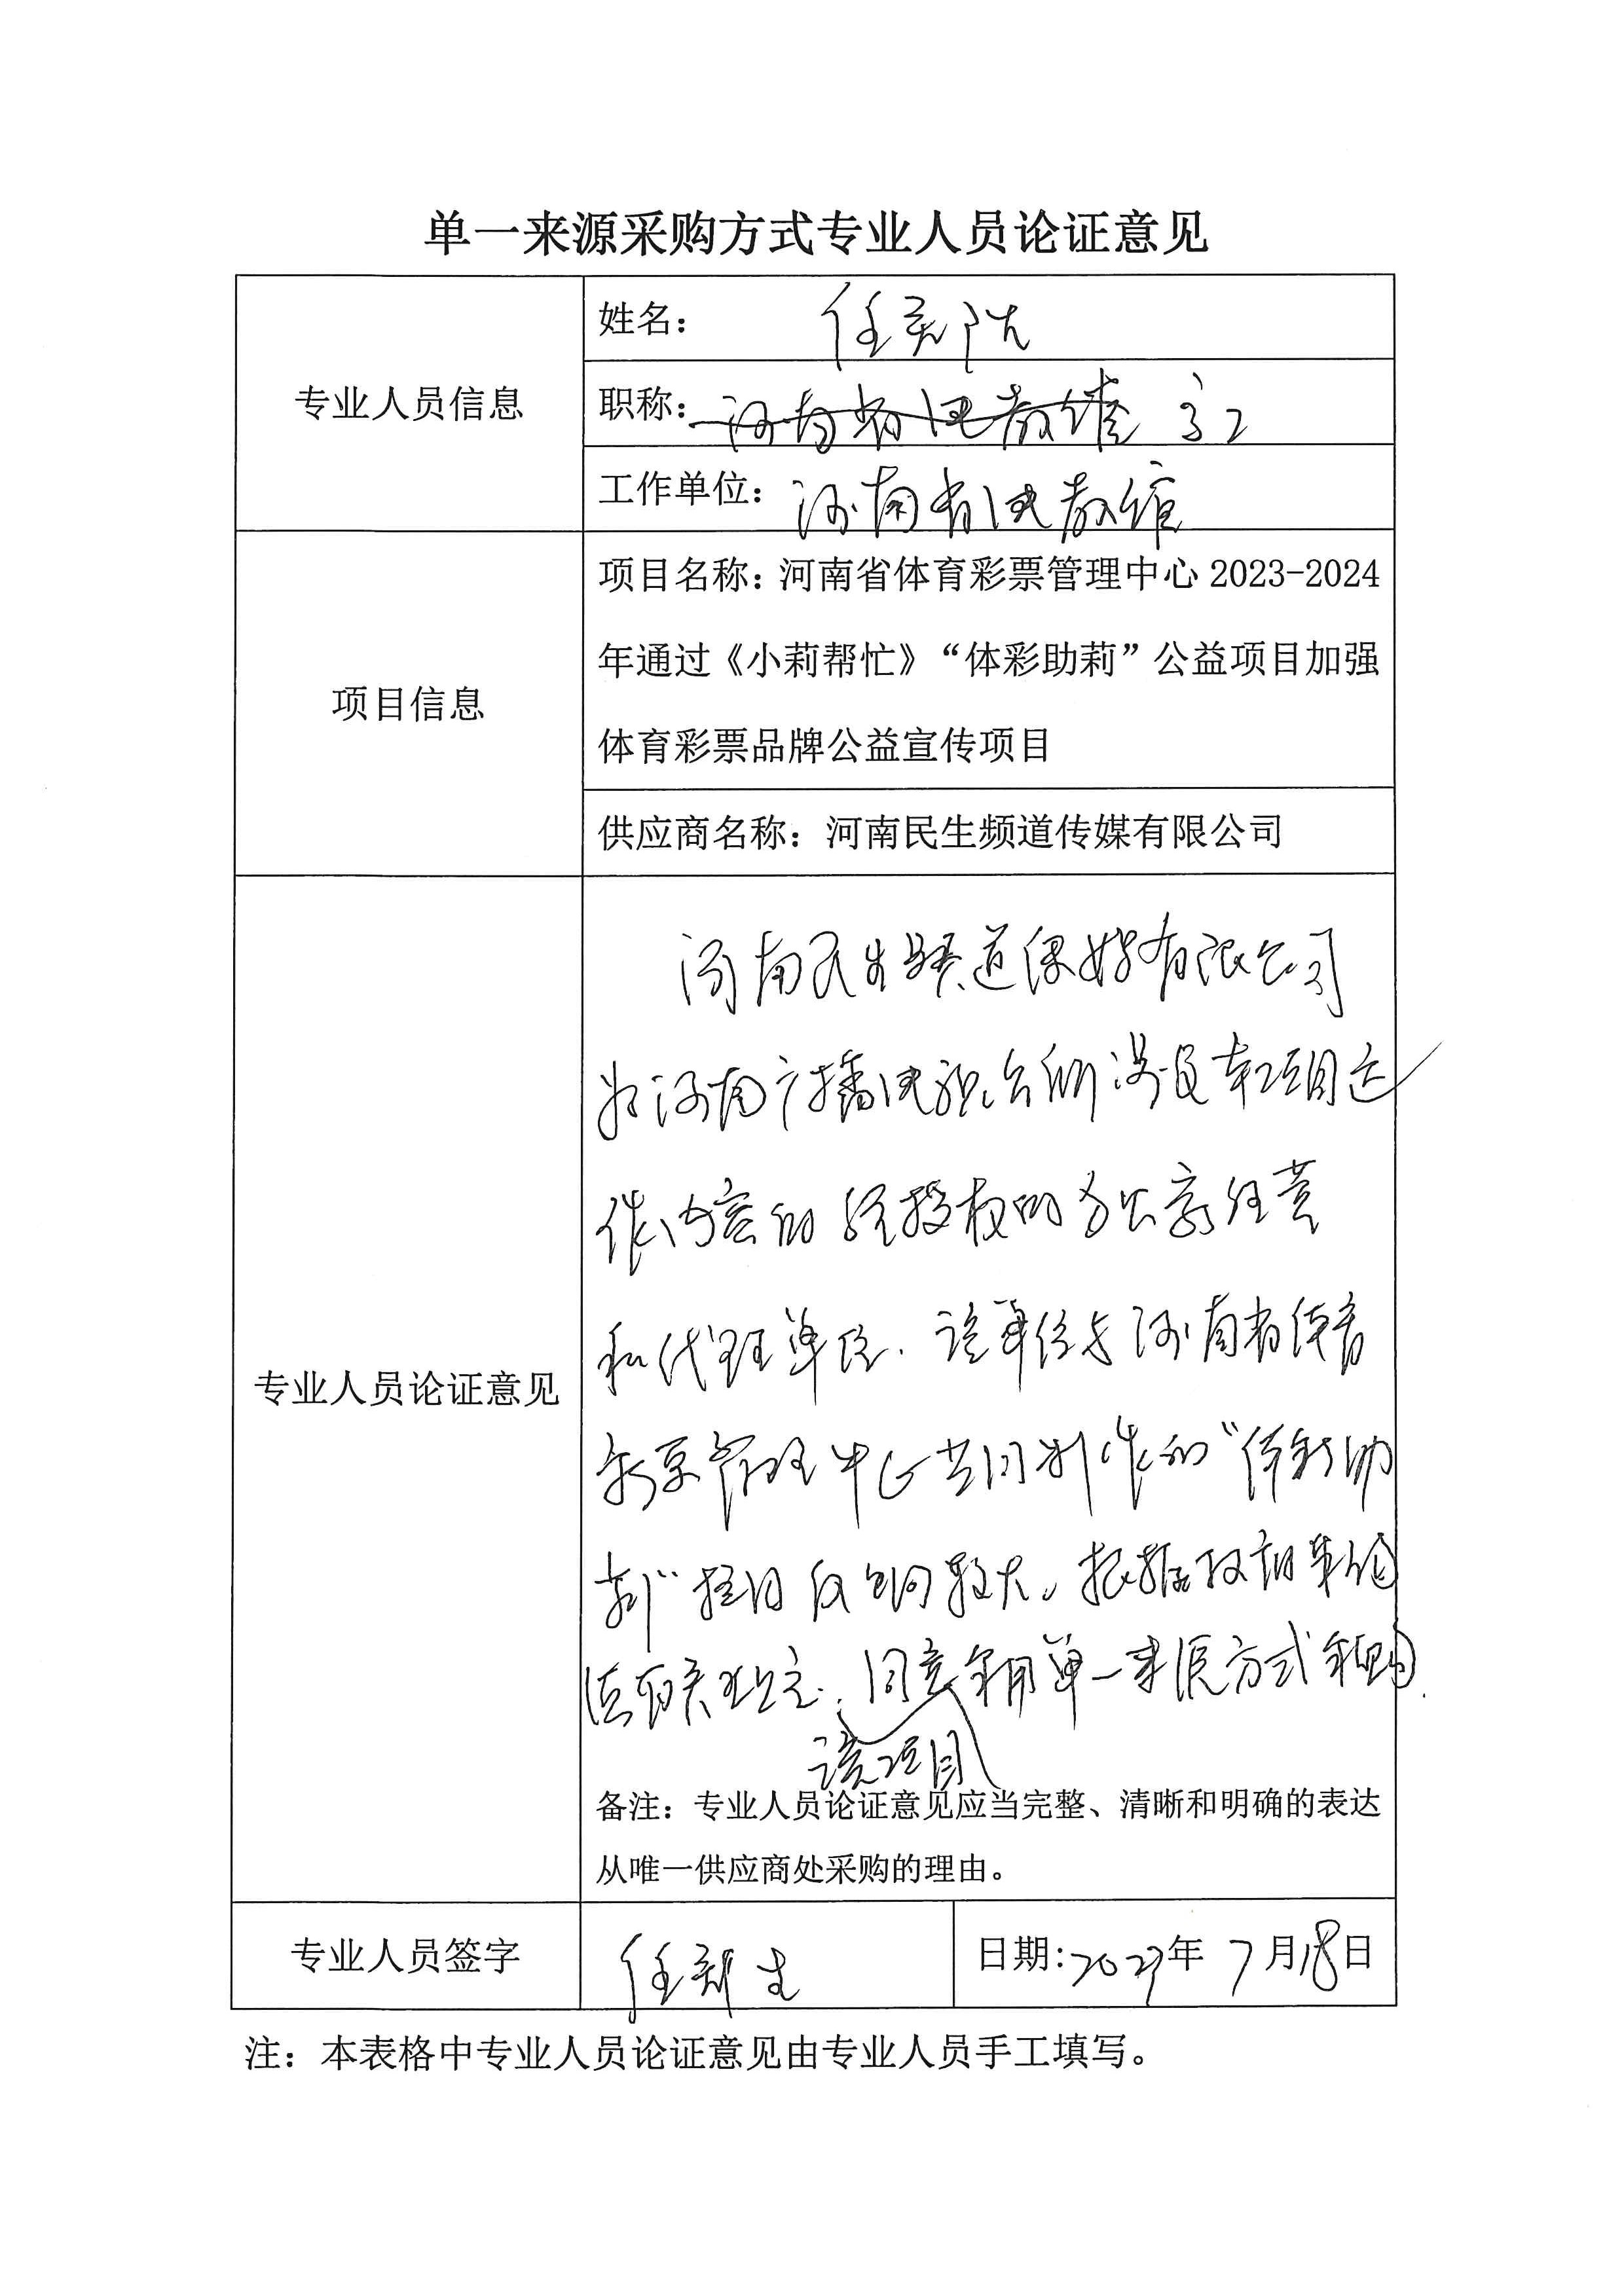 单一来源采购方式专业人员论证意见
专业人员信息
姓名： 任
职称： 河南省电教馆 高工
工作单位： 河南省电教馆
项目信息
项目名称：河南省体育彩票管理中心 2023-2024
年通过《小莉帮忙》“体彩助莉”公益项目加强
体育彩票品牌公益宣传项目
供应商名称：河南民生频道传媒有限公司
专业人员论证意见
河南民生频道传媒有限公司
为河南广播电视台所设具本项目运
作内容的经授权的办公室经营
和代理单位．该单位与河南省体育
彩票管理中心共同制作的“体彩助
莉”栏目反响较大。根据政府采购
法有关规定．同意采用单一来源方式采购．
该项目
备注：专业人员论证意见应当完整、清晰和明确的表达
从唯一供应商处采购的理由。
专业人员签字
任
日期：2023年 7月18日
注：本表格中专业人员论证意见由专业人员手工填写。